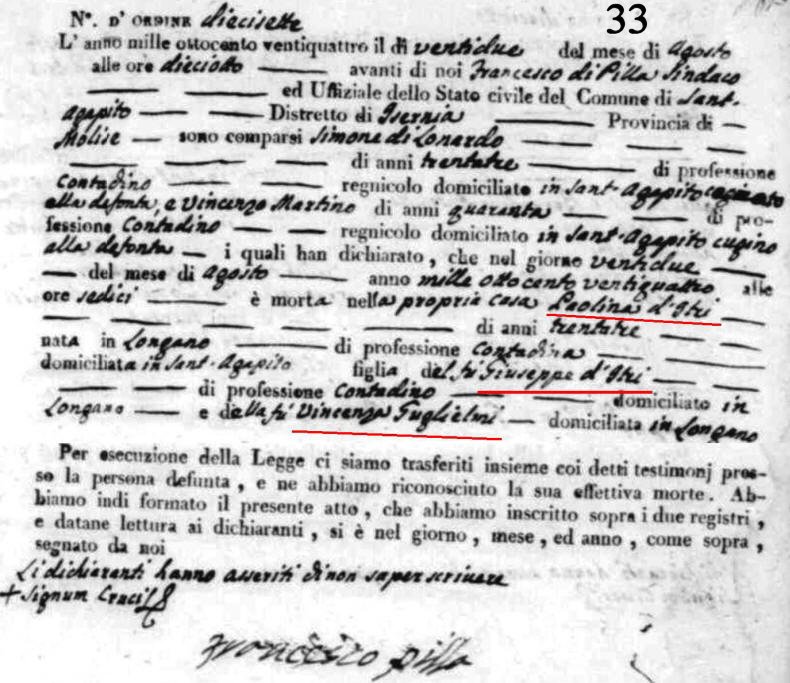 33
N.° D' ORDINE diecisette
L' anno mille ottocento ventiquattro il dì ventidue del mese di Agosto
alle ore dieciotto avanti di noi Francesco di Pilla Sindaco
ed Uffiziale dello Stato civile del Comune di Sant-
Agapito Distretto di Isernia Provincia di
Molise sono comparsi Simone di Lonardo
di anni trentatre di professione
Contadino regnicolo domiciliato in Sant-Agapito
alla defonta, e Vincenzo Martino di anni quaranta di pro-
fessione Contadino regnicolo domiciliato in Sant-Agapito cugino
alla defonta i quali han dichiarato, che nel giorno ventidue
del mese di Agosto anno mille ottocento ventiquattro alle
ore sedici è morta nella propria casa Paolina d'Itri
di anni trentatre
nata in Longano di professione Contadina
domiciliata in Sant-Agapito figlia del fù Giuseppe d'Itri
di professione Contadino domiciliato in
Longano e della fù Vincenza Guglielmi domiciliata in Longano
Per esecuzione della Legge ci siamo trasferiti insieme coi detti testimonj pres-
so la persona defunta, e ne abbiamo riconosciuto la sua effettiva morte. Ab-
biamo indi formato il presente atto, che abbiamo inscritto sopra i due registri,
e datane lettura ai dichiaranti, si è nel giorno, mese, ed anno, come sopra,
segnato da noi
Li dichiaranti hanno asseriti di non saper scrivere
+ Signum Crucis
Francesco pilla